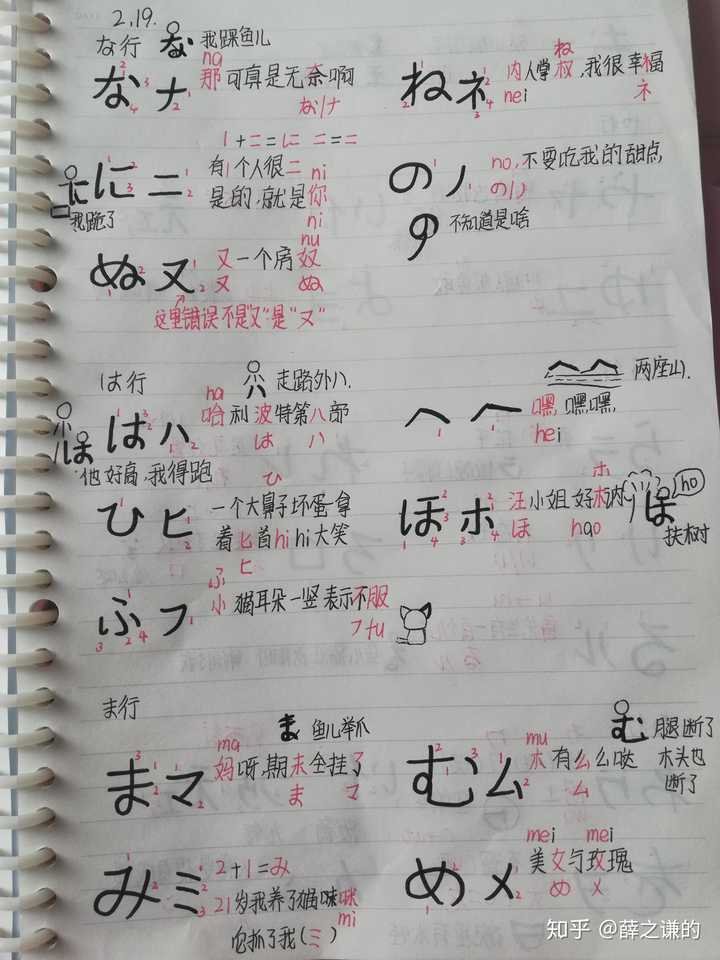 2,19.
な行 な 我踩鱼儿
なナ na 那可真是无奈啊
な ナ
ねネ 内人掌权,我很幸福
ね
nei
ネ
1+二=に 二=二
にニ 有1个人很二 ni
是的,就是你
ni
我跪了
のノ no,不要吃我的甜点
のノ
の 不知道是啥
ぬヌ 又一个房奴
nu
又 ぬ
这里错误不是"又"是"ヌ"
は行 ハ 走路外八
はハ 哈利波特第八部
ha
は ハ
ほ 他好高,我得跑
へへ 嘿,嘿嘿,
hei
两座山.
ひヒ 一个大鼻子坏蛋,拿
ひ
着匕首hihi大笑
ヒ
ほホ 汪小姐好木讷
ホ
ほ hao
ho
ほ
扶树
ふフ 小猫耳朵一竖表示不服
ふ
フfu
ま行 ま 鱼儿举爪
まマ 妈呀,期末全挂了
ma
ま マ
むム 木有么么哒
mu
ム
む 腿断了
木头也
断了
みミ 2+1=み
21岁我养了猫咪咪
mi
它抓了我(ミ)
めメ 美女与玫瑰
mei mei
め メ
知乎 @薛之谦的